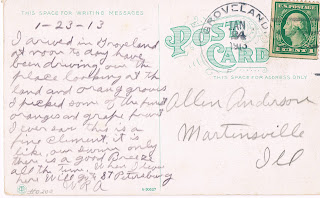 THIS SPACE FOR WRITING MESSAGES
1-23-13
I arrived in Groveland
at noon to day have
been driving over the
place looking at the
land and orange groves
I picked some of the finest
oranges and grape fruit
I ever saw this is a
fine climent, it is
like our summer only
there is a good Breeze
all the time. When I leave
here Will go to St Petersburg
GROVELAND
JAN
24
1913
POST
CARD
THIS SPACE FOR ADDRESS ONLY
Allen Anderson
Martinsville
Ill